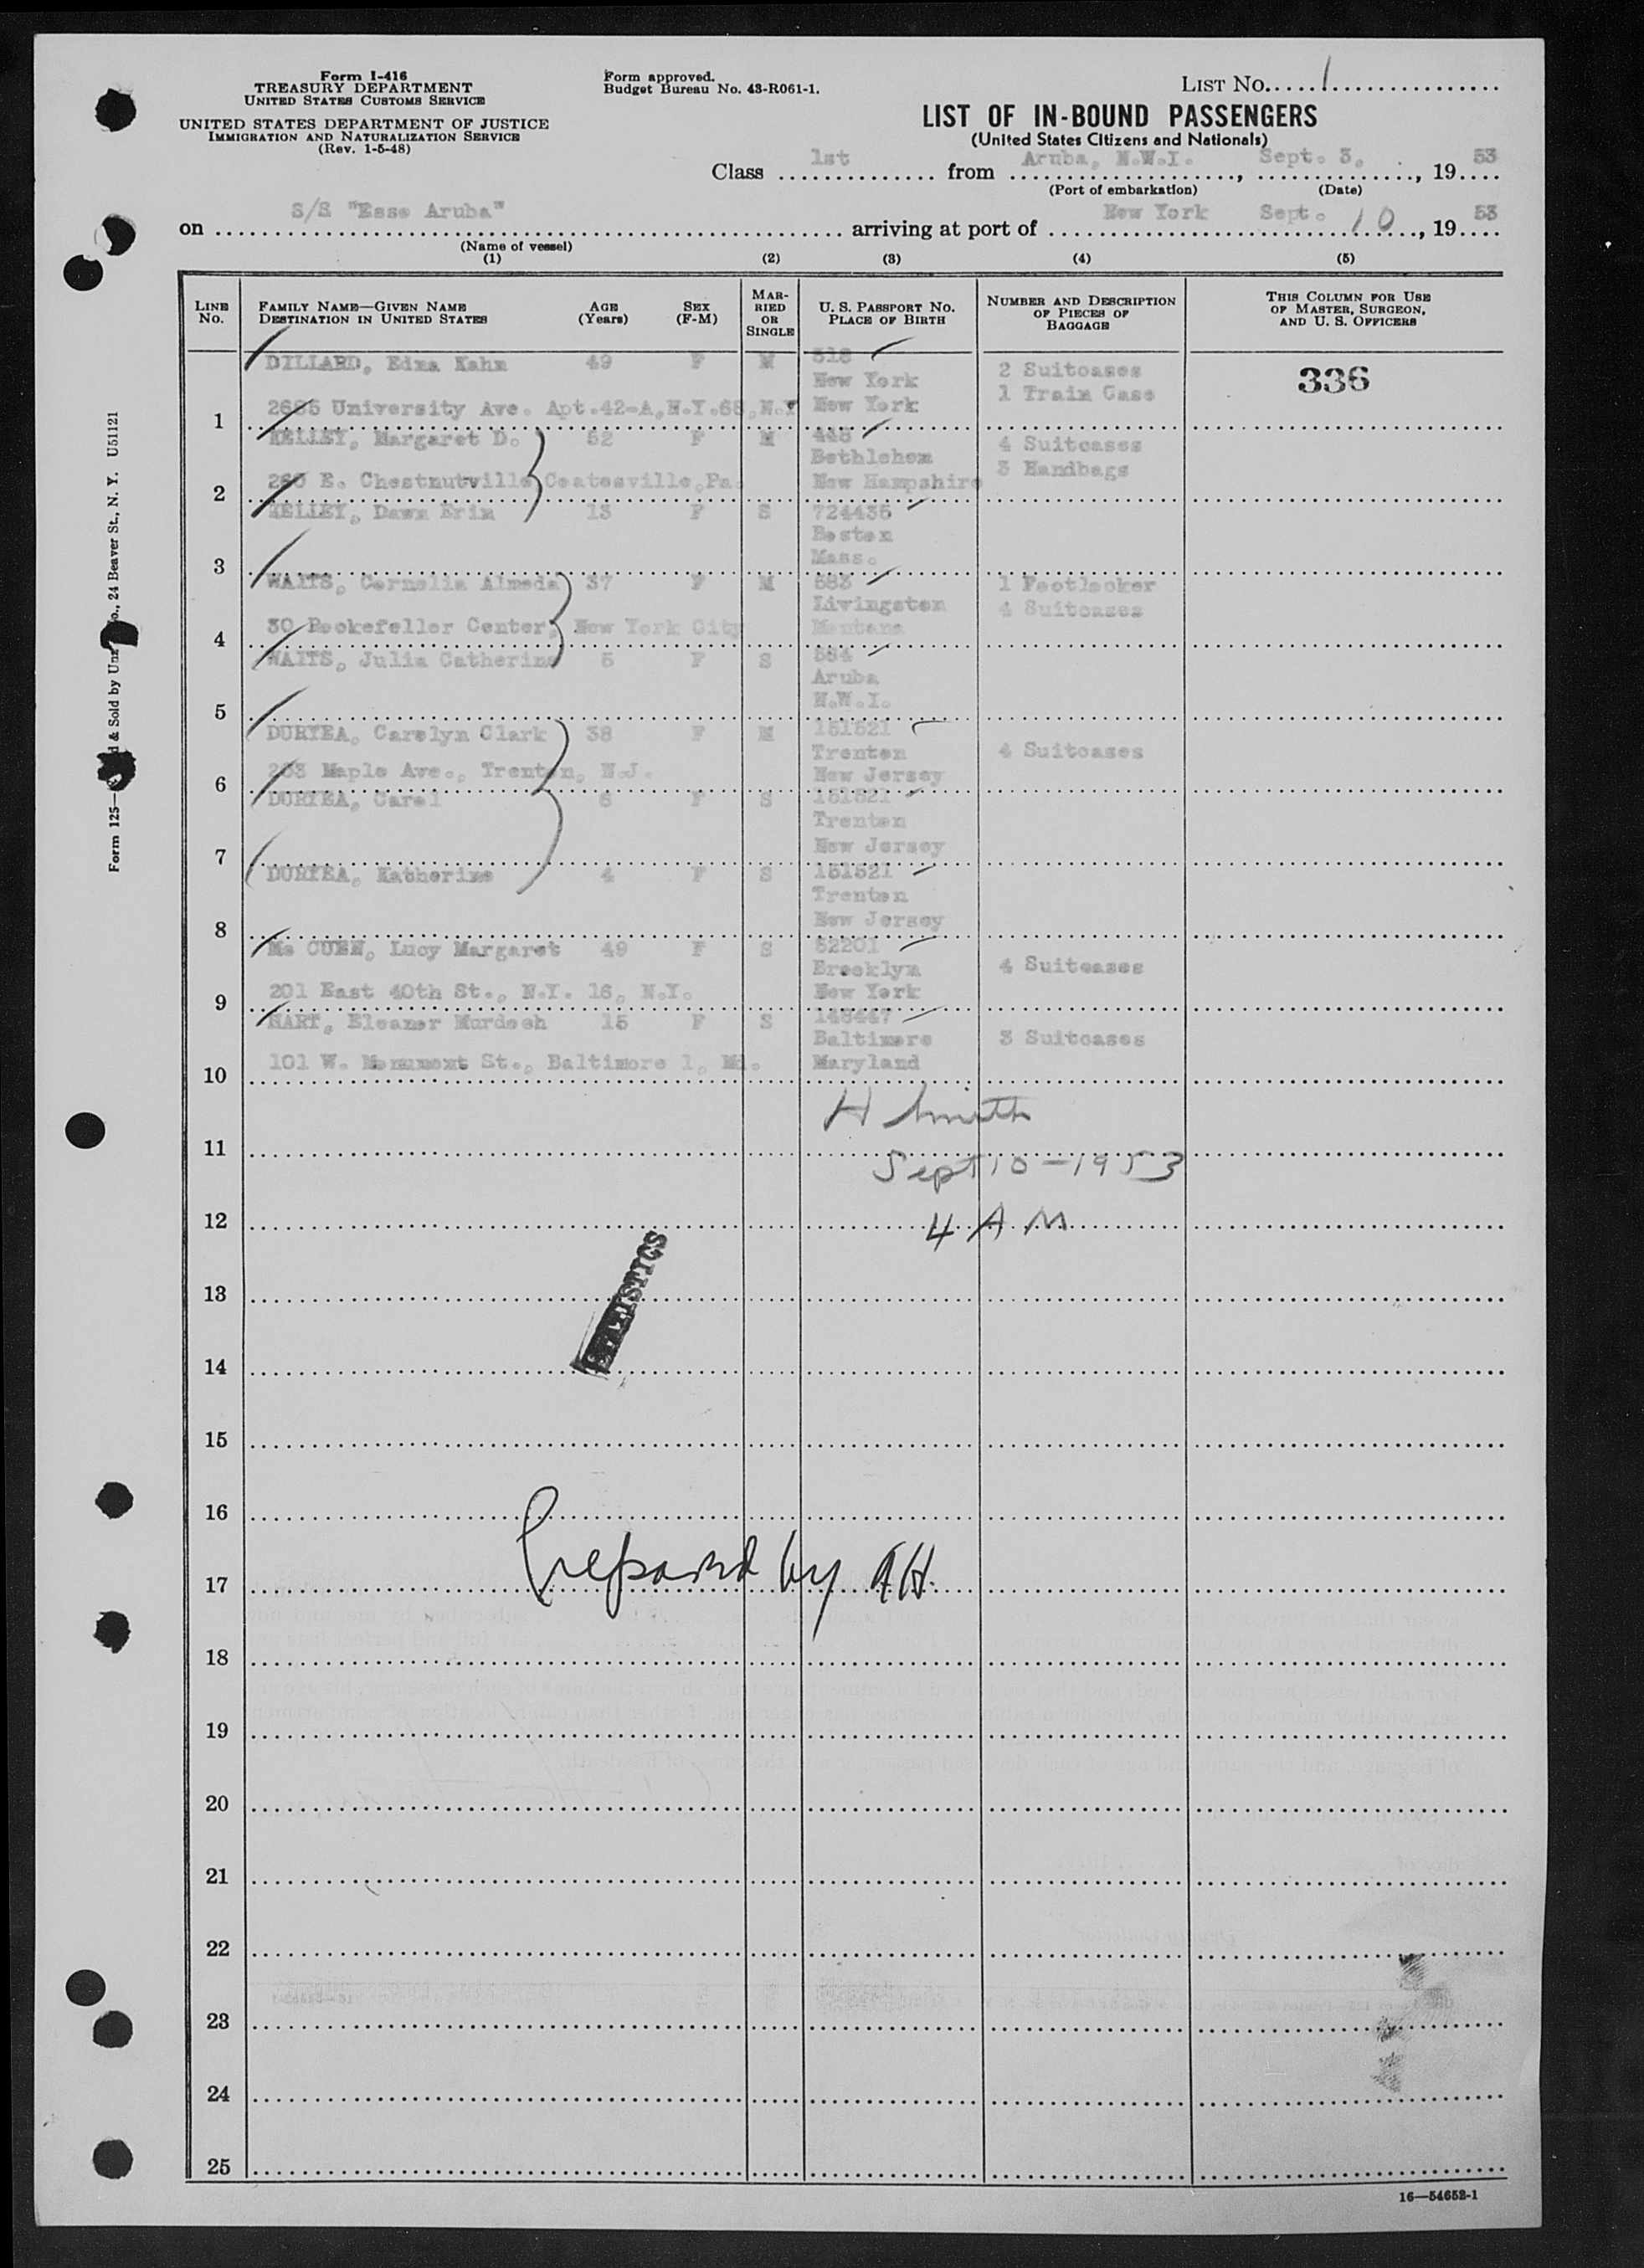 Form I-416
TREASURY DEPARTMENT
UNITED STATES CUSTOMS SERVICE
UNITED STATES DEPARTMENT OF JUSTICE
IMMIGRATION AND NATURALIZATION SERVICE
(Rev. 1-5-48)
Form approved.
Budget Bureau No. 43-R061-1.
LIST No. 1
LIST OF IN-BOUND PASSENGERS
(United States Citizens and Nationals)
Class 1st from Aruba, N.W.I. Sept. 3, 1953
(Port of embarkation) (Date)
on S/S "Esso Aruba" arriving at port of New York Sept. 10, 1953
(Name of vessel)
(1) (2) (3) (4) (5)
LINE No. FAMILY NAME—GIVEN NAME DESTINATION IN UNITED STATES AGE (Years) SEX (F-M) MARRIED OR SINGLE U. S. PASSPORT NO. PLACE OF BIRTH NUMBER AND DESCRIPTION OF PIECES OF BAGGAGE THIS COLUMN FOR USE OF MASTER, SURGEON, AND U. S. OFFICERS
DILLARD, Edna Kahn 49 F M 518
New York 2 Suitcases 336
1 Train Case
1 2685 University Ave. Apt.42-A,N.Y.68,N.Y New York
KELLEY, Margaret D. 52 F M 448 4 Suitcases
Bethlehem 3 Handbags
2 E. Chestnutville Coatesville,Pa. New Hampshire
KELLEY, Dawn Erin 13 F S 724435
Boston
3 Mass.
WAITS, Cornelia Almeda 37 F M 583 1 Footlocker
Livingston 4 Suitcases
4 30 Rockefeller Center, New York City Montana
WAITS, Julia Catherine 5 F S 584
Aruba
5 N.W.I.
DURYEA, Carolyn Clark 38 F M 151521
Trenton 4 Suitcases
6 Maple Ave., Trenton, N.J. New Jersey
DURYEA, Carol 6 F S 151521
Trenton
7 New Jersey
DURYEA, Katherine 4 F S 151521
Trenton
8 New Jersey
Mc CUEN, Lucy Margaret 49 F S 52201
Brooklyn 4 Suitcases
9 201 East 40th St., N.Y. 16, N.Y. New York
HART, Eleanor Murdoch 15 F S 148447
Baltimore 3 Suitcases
10 101 W. Monument St., Baltimore 1, Md. Maryland
H Smith
11
Sept 10-1953
12 4 AM
STATISTICS
13
14
15
16
17 Prepared by AH.
18
19
20
21
22
23
24
25
16—54652-1
Form 125— & Sold by Co., 24 Beaver St., N. Y. U51121